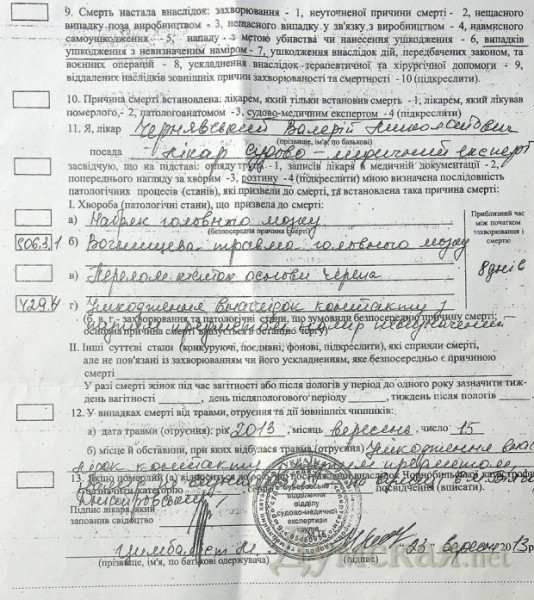 9. Смерть настала внаслідок: захворювання - 1, неуточненої причини смерті - 2, нещасного
випадку поза виробництвом - 3, нещасного випадку у зв'язку з виробництвом - 4, навмисного
самоушкодження - 5, нападу з метою убивства чи нанесення ушкодження - 6, випадків
ушкодження з невизначеним наміром - 7, ушкодження внаслідок дій, передбачених законом, та
воєнних операцій - 8, ускладнення внаслідок терапевтичної та хірургічної допомоги - 9,
віддалених наслідків зовнішніх причин захворюваності та смертності - 10 (підкреслити).
10. Причина смерті встановлена: лікарем, який тільки встановив смерть - 1, лікарем, який лікував
померлого, - 2, патологоанатомом - 3, судово-медичним експертом - 4 (підкреслити)
11. Я, лікар Чернявський Валерій
(прізвище, ім'я, по батькові)
посада Лікар судово-медичний експерт
засвідчую, що на підставі: огляду трупа - 1, записів лікаря в медичній документації - 2,
попереднього нагляду за хворим - 3, розтину - 4 (підкреслити) мною визначена послідовність
патологічних процесів (станів), які призвели до смерті, та встановлена така причина смерті:
I. Хвороба (патологічні стани), що призвела до смерті:
Приблизний час між початком захворювання і смертю
а) Набряк головного мозку
(безпосередня причина смерті)
S06.3.1 б) травма головного мозку
в) Перелом кісток основи черепа
8 днів
Y29.4 г) Ушкодження внаслідок контакту з
(б, в, г - захворювання та патологічні стани, що зумовили безпосередню причину смерті;
тупим предметом, намір невизначений
основна причина смерті вказується в останню чергу)
II. Інші суттєві стани (конкуруючі, поєднані, фонові, підкреслити), які сприяли смерті,
але не пов'язані із захворюванням чи його ускладненням, яке безпосередньо є причиною
смерті
У разі смерті жінок під час вагітності або після пологів у період до одного року зазначити тиж-
день вагітності, день післяпологового періоду, тиждень після пологів
12. У випадках смерті від травми, отруєння та дії зовнішніх чинників:
а) дата травми (отруєння): рік 2013, місяць вересень, число 15
б) місце й обставини, при яких відбулася травма (отруєння) Ушкодження внас
лідок контакту предметом
13. Якщо померлий
зазначити категорію посвідчення (вписати).
Підпис лікаря, який
заповнив свідоцтво
судово-медичної
експертизи
23 вересня 2013 р.
(прізвище, ім'я, по батькові одержувача) (підпис)
Думская.net